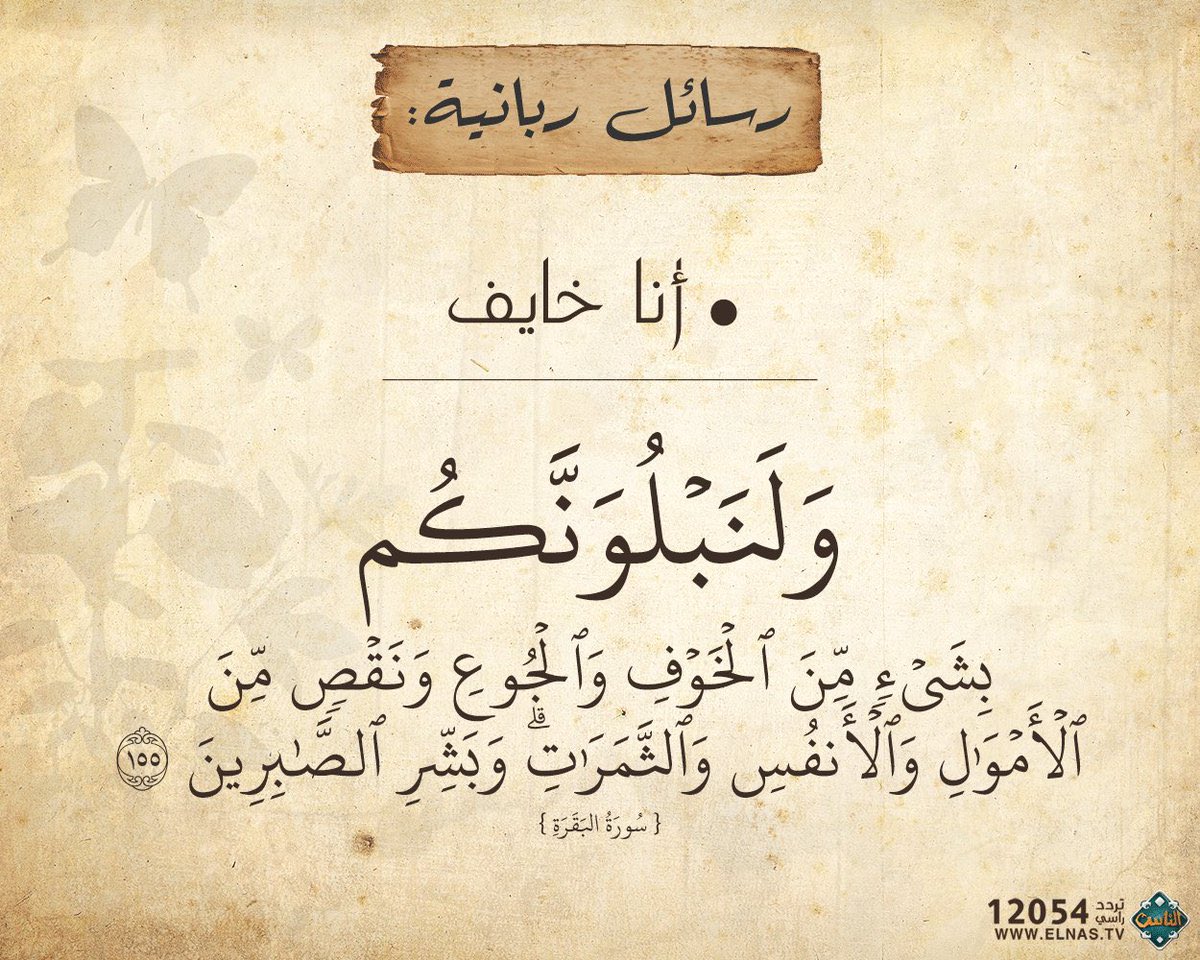 رسائل ربانية:
• أنا خايف
وَلَنَبۡلُوَنَّكُم
بِشَىۡءٍ مِّنَ ٱلۡخَوۡفِ وَٱلۡجُوعِ وَنَقۡصٍ مِّنَ
ٱلۡأَمۡوَٰلِ وَٱلۡأَنفُسِ وَٱلثَّمَرَٰتِۗ وَبَشِّرِ ٱلصَّٰبِرِينَ ١٥٥
{ سُورَةُ البَقَرَةِ }
تردد رأسي 12054
WWW.ELNAS.TV
الناس